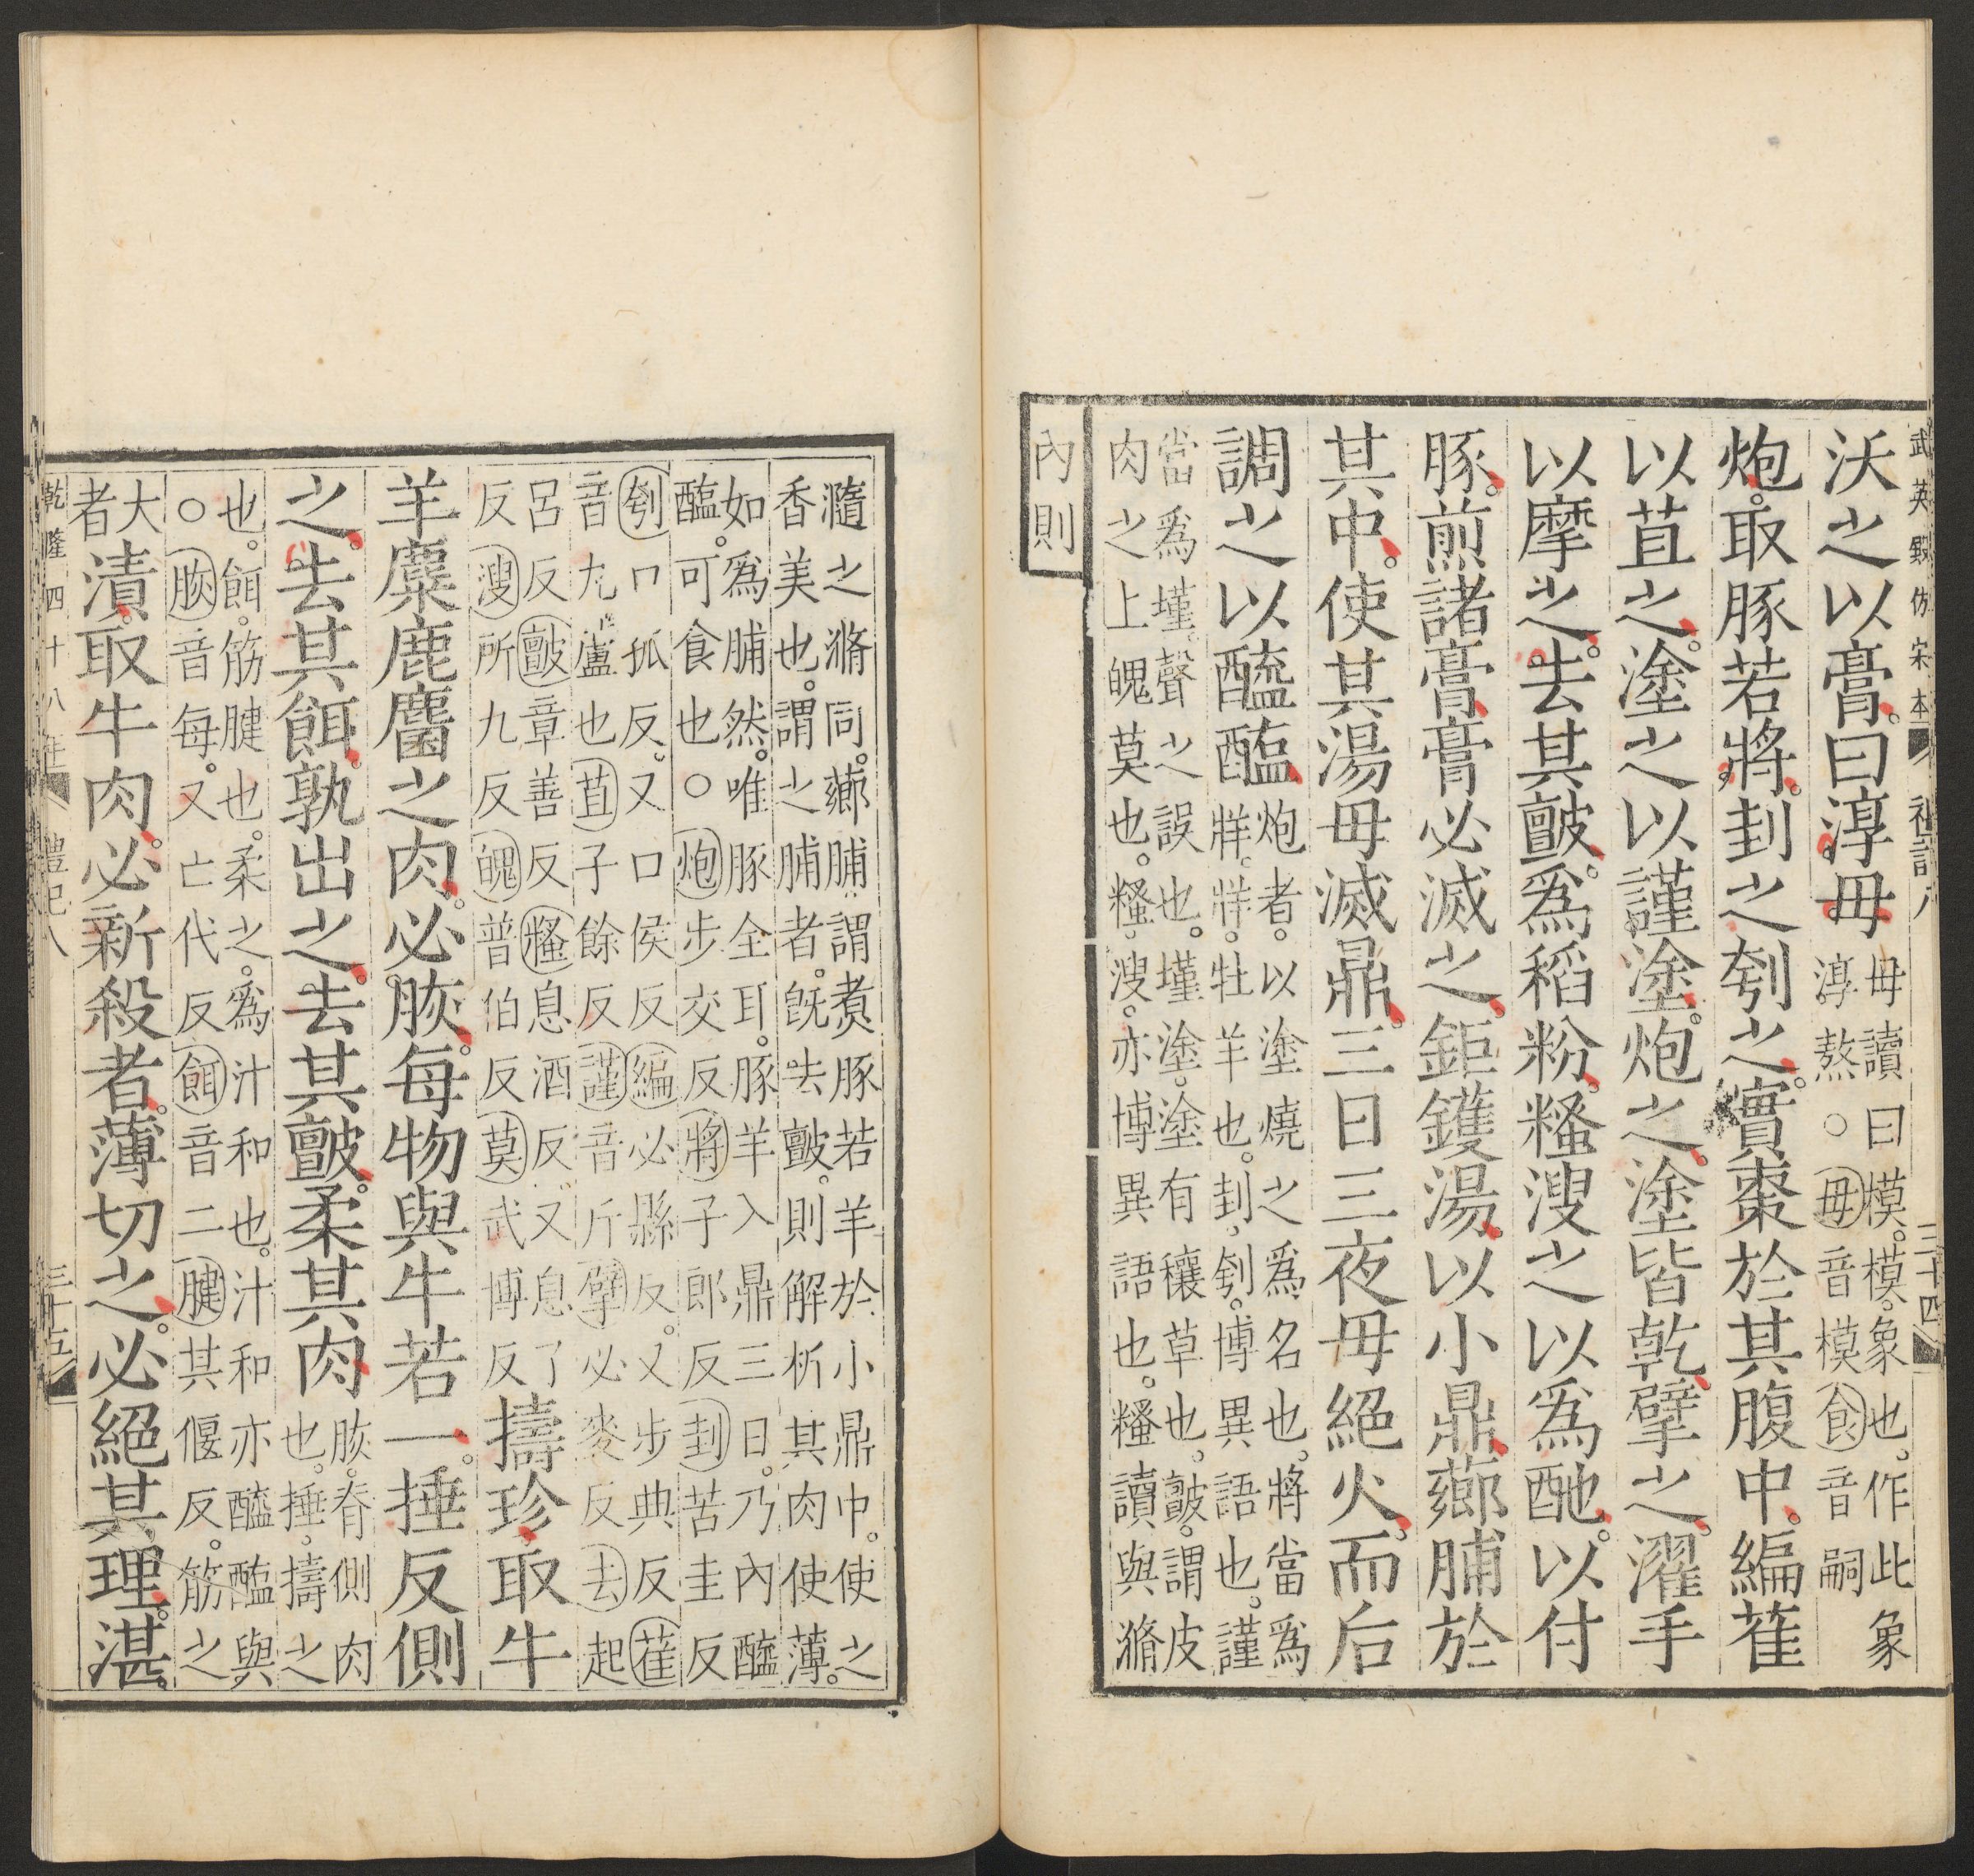 武英殿仿宋本
禮記八
三十四
沃之以膏曰淳毋毋讀曰模模象也作此象
淳熬○毋音模食音嗣
炮取豚若將刲之刳之實棗於其腹中編萑
以苴之塗之以謹塗炮之塗皆乾擘之濯手
以摩之去其皽爲稻粉糔溲之以爲酏以付
豚煎諸膏膏必滅之鉅鑊湯以小鼎薌脯於
其中使其湯毋滅鼎三日三夜毋絕火而后
調之以醯醢炮者以塗燒之爲名也將當爲
牂牂牡羊也刲刳博異語也謹
當爲墐聲之誤也墐塗塗有穰草也皽謂皮
肉之上魄莫也糔溲亦博異語也糔讀與滫
內則
瀡之滫同薌脯謂煑豚若羊於小鼎中使之
香美也謂之脯者旣去皽則解析其肉使薄
如爲脯然唯豚全耳豚羊入鼎三日乃內醯
醢可食也○炮步交反將子郎反刲苦圭反
刳口孤反又口侯反編必縣反又步典反萑
音九蘆也苴子餘反謹音斤擘必麥反去起
呂反皽章善反糔息酒反又息了
反溲所九反魄普伯反莫武博反
擣珍取牛
羊麋鹿麕之肉必脄每物與牛若一捶反側
之去其餌孰出之去其皽柔其肉脄脊側肉
也捶擣之
也餌筋腱也柔之爲汁和也汁和亦醯醢與
○脄音每又亡代反餌音二腱其偃反筋之
大
者
漬取牛肉必新殺者薄切之必絕其理湛
乾隆四十八年
禮記八
三十五